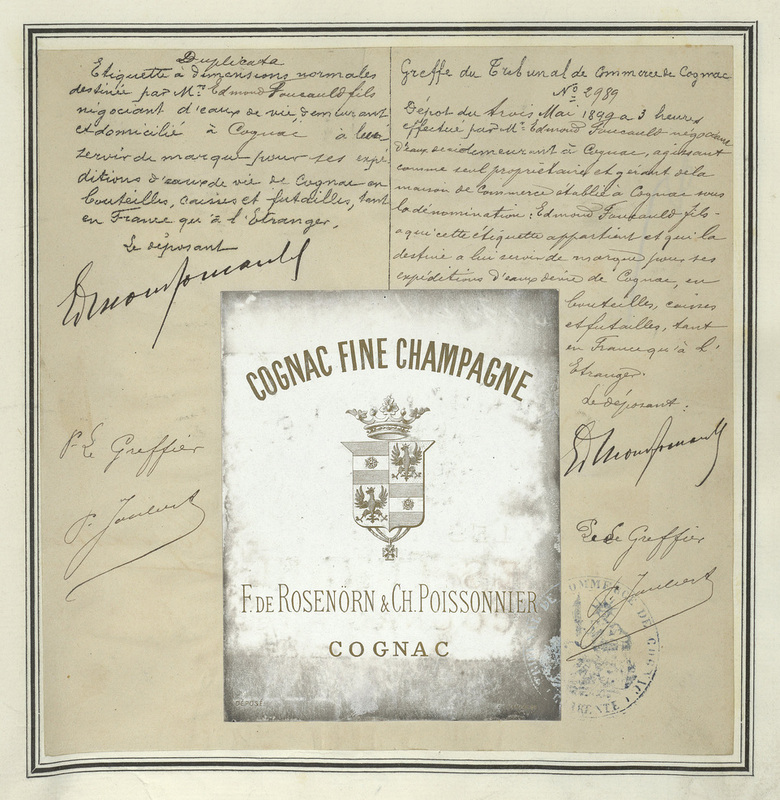 Duplicata
Etiquette à dimensions normales
destinée par Mr. Edmond Foucauld fils
négociant d'eaux de vie, demeurant
et domicilié à Cognac à lui
servir de marque pour ses expé-
ditions d'eaux de vie de Cognac en
bouteilles, caisses et futailles, tant
en France qu'à l'Etranger.
Le déposant
Edmond Foucauld
Pr Le Greffier
P. Joubert
Greffe du Tribunal de Commerce de Cognac
No 2989
Dépôt du trois Mai 1899 à 3 heures
effectué par Mr. Edmond Foucauld négociant
d'eaux de vie demeurant à Cognac, agissant
comme seul propriétaire et gérant de la
maison de Commerce établie à Cognac sous
la dénomination: Edmond Foucauld fils -
à qui cette étiquette appartient et qui la
destine à lui servir de marque pour ses
expéditions d'eaux de vie de Cognac, en
bouteilles, caisses
et futailles, tant
en France qu'à l'
Etranger.
Le déposant:
Edmond Foucauld
Pr Le Greffier
Joubert
COGNAC FINE CHAMPAGNE
F. DE ROSENÖRN & CH. POISSONNIER
COGNAC
DÉPOSÉ
COMMERCE DE COGNAC
CHARENTE